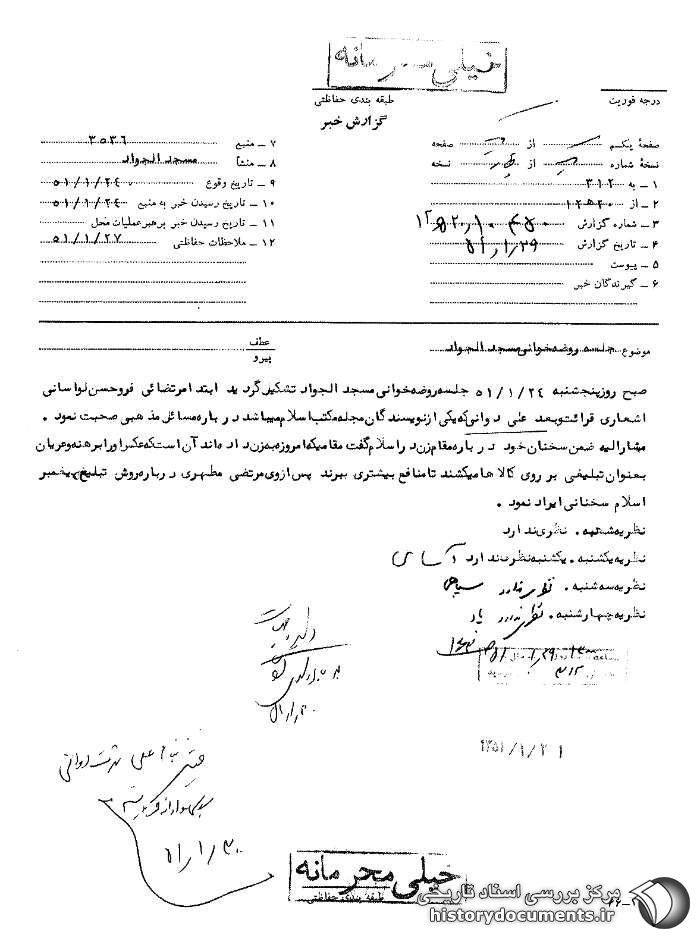 خیلی محرمانه
طبقه بندی حفاظتی
درجه فوریت
گزارش خبر
صفحهٔ یکم از صفحه
نسخهٔ شماره از نسخه
۱ ـ به ۳۱۲
۲ ـ از ۲۰ه۱۲
۳ ـ شماره گزارش
۴ ـ تاریخ گزارش ۵۱/۱/۲۹
۵ ـ پیوست
۶ ـ گیرندگان خبر
۷ ـ منبع ۳۵۳۶
۸ ـ منشأ مسجد الجواد
۹ ـ تاریخ وقوع ۵۱/۱/۲۴
۱۰ ـ تاریخ رسیدن خبر به منبع ۵۱/۱/۲۴
۱۱ ـ تاریخ رسیدن خبر برهبر عملیات محل
۱۲ ـ ملاحظات حفاظتی ۵۱/۱/۲۷
موضوع جلسه روضه خوانی مسجد الجواد
عطف
پیرو
صبح روز پنجشنبه ۵۱/۱/۲۴ جلسه روضه خوانی مسجد الجواد تشکیل گردید ابتدا مرتضائی فر و حسن لواسانی
اشعاری قرائت و بعد علی دوانی که یکی از نویسندگان مجله مکتب اسلام میباشد درباره مسائل مذهبی صحبت نمود .
مشارالیه ضمن سخنان خود درباره مقام زن در اسلام گفت مقامیکه امروزه به زن داده اند آن است که عکس او را برهنه و عریان
بعنوان تبلیغی بر روی کالاها میکشند تا منافع بیشتری ببرند پس از وی مرتضی مطهری درباره روش تبلیغ پیغمبر
اسلام سخنانی ایراد نمود .
نظریه شنبه . نظری ندارد
نظریه یکشنبه . یکشنبه نظری ندارد آسای
نظریه سه شنبه . نظری ندارد
نظریه چهارشنبه . نظری ندارد
۵۱/۱/۳۰
۱۳۵۱/۱/۳۱
۵۱/۱/۳۰
خیلی محرمانه
طبقه بندی حفاظتی
مرکز بررسی اسناد تاریخی
historydocuments.ir